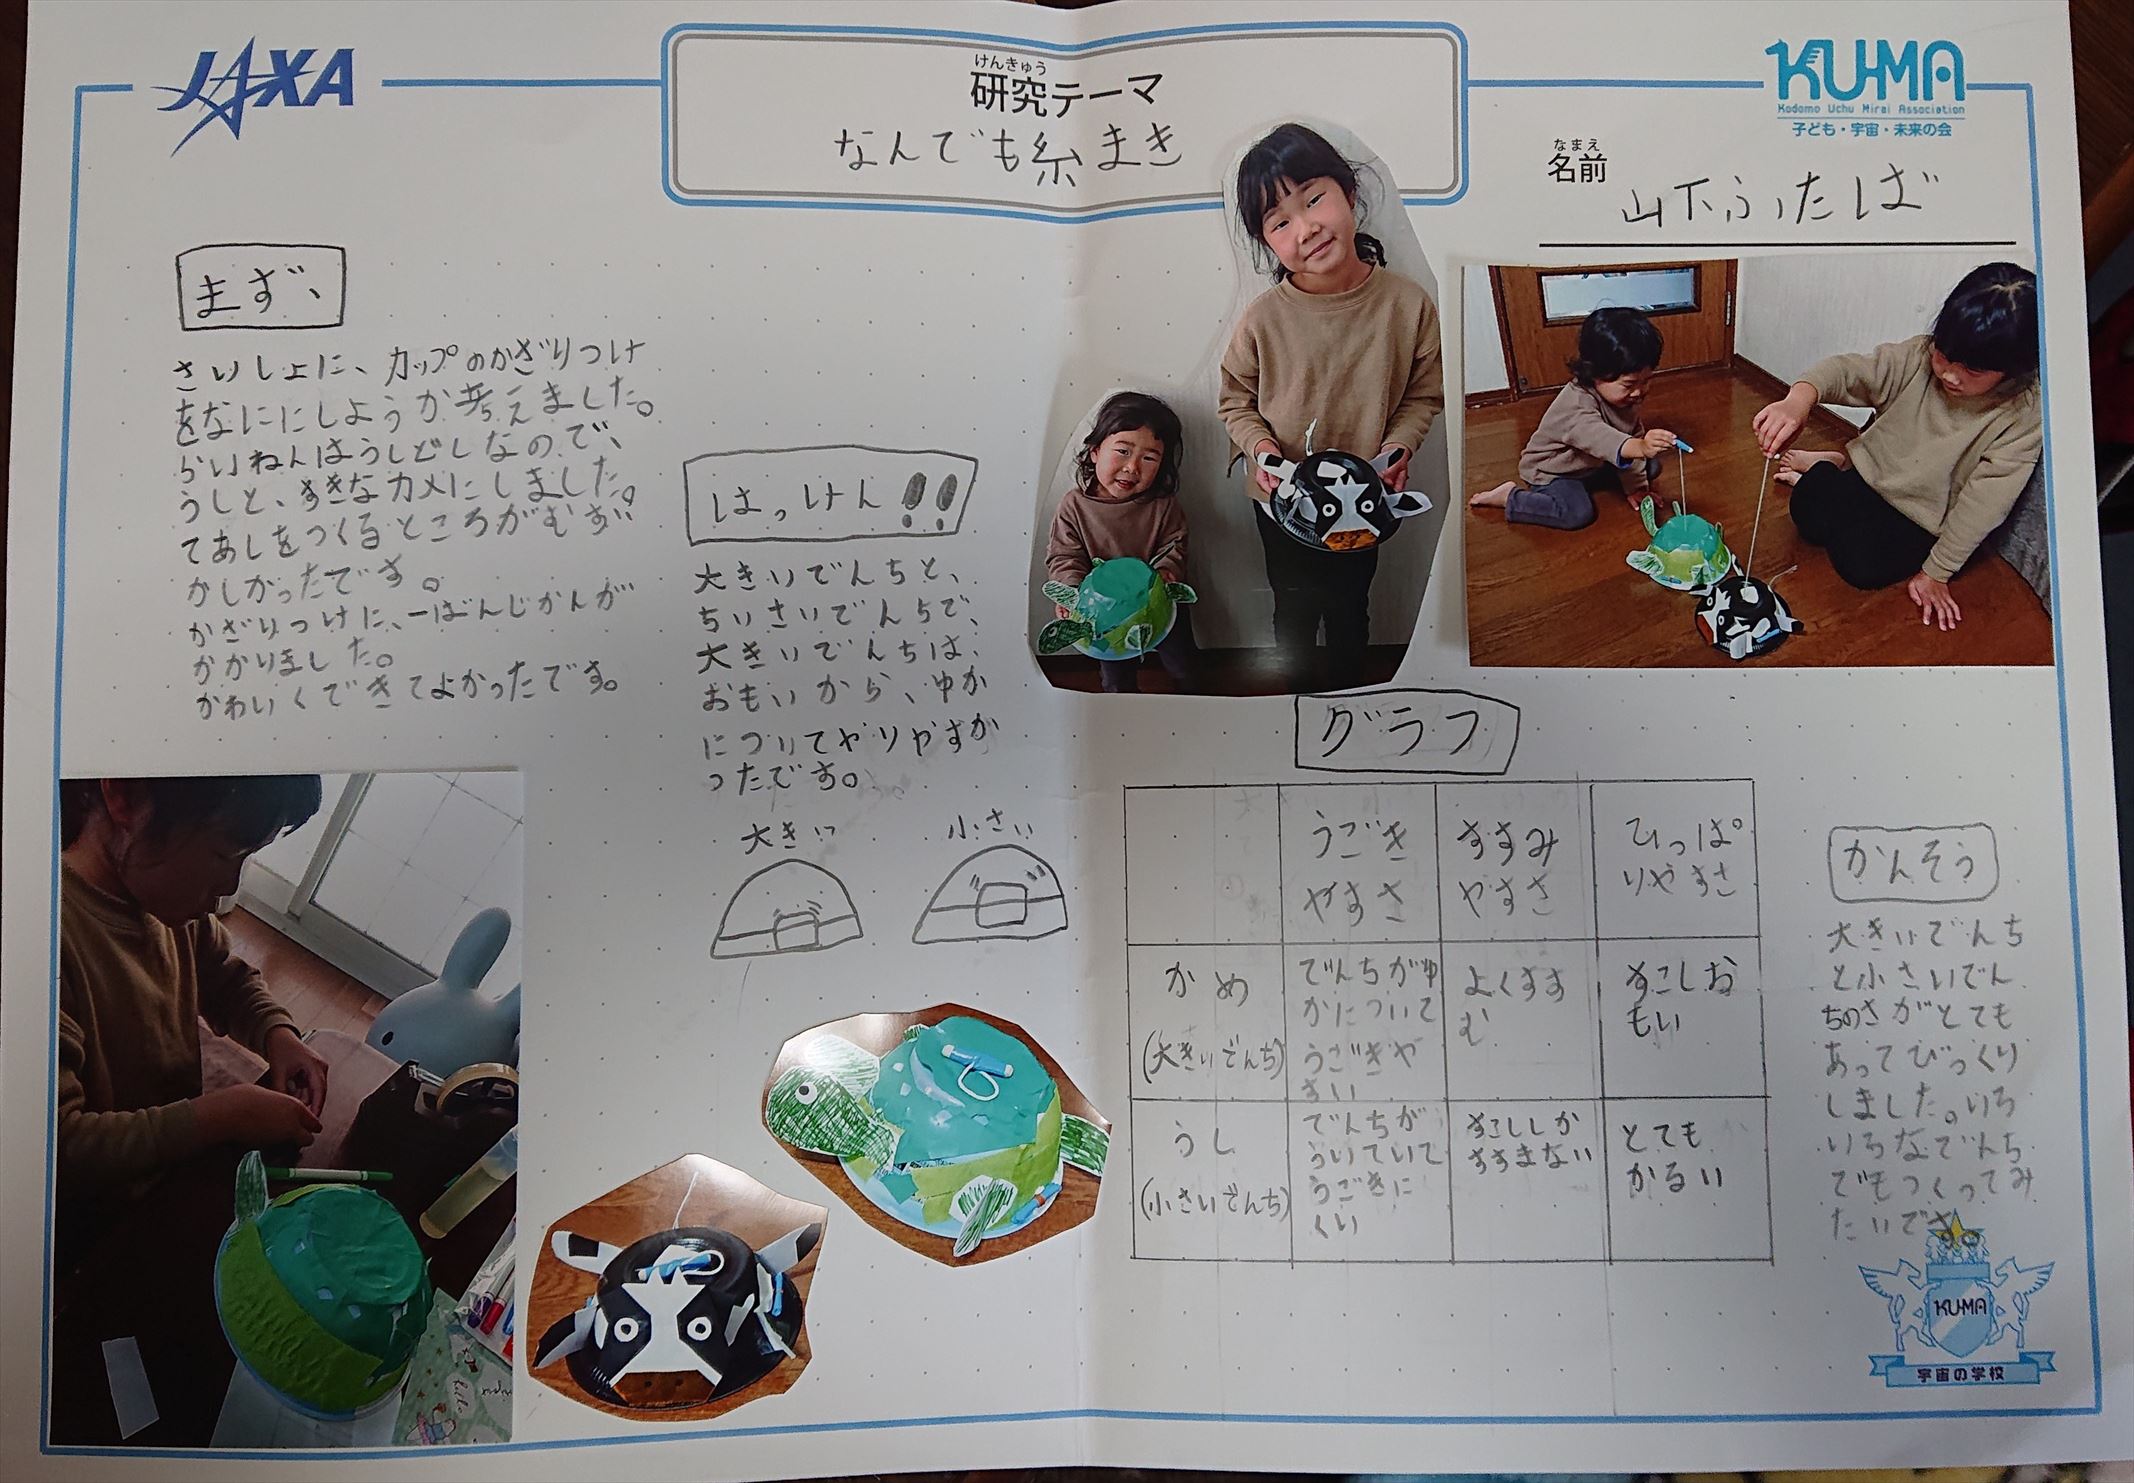 JAXA
けんきゅう
研究テーマ
なんでも糸まき
KU-MA
Kodomo Uchu Mirai Association
子ども・宇宙・未来の会
なまえ
名前
山下ふたば
まず、
さいしょに、カップのかざりつけ
をなににしようか考えました。
らいねんはうしどしなので、
うしと、すきなカメにしました。
てあしをつくるところがむずい
かしかったです。
かざりつけに、一ばんじかんが
かかりました。
かわいくできてよかったです。
はっけん!!
大きいでんちと、
ちいさいでんちで、
大きいでんちは、
おもいから、ゆか
についてやりやすか
ったです。
大きい
小さい
グラフ
うごき
やすさ
すすみ
やすさ
ひっぱ
りやすさ
かめ
(大きいでんち)
でんちがゆ
かについて
うごきや
すい
よくすす
む
すこしお
もい
うし
(小さいでんち)
でんちが
ういていて
うごきに
くい
すこししか
すすまない
とても
かるい
かんそう
大きいでんち
と小さいでん
ちのさがとても
あってびっくり
しました。いろ
いろなでんち
でもつくってみ
たいです。
KU-MA
宇宙の学校